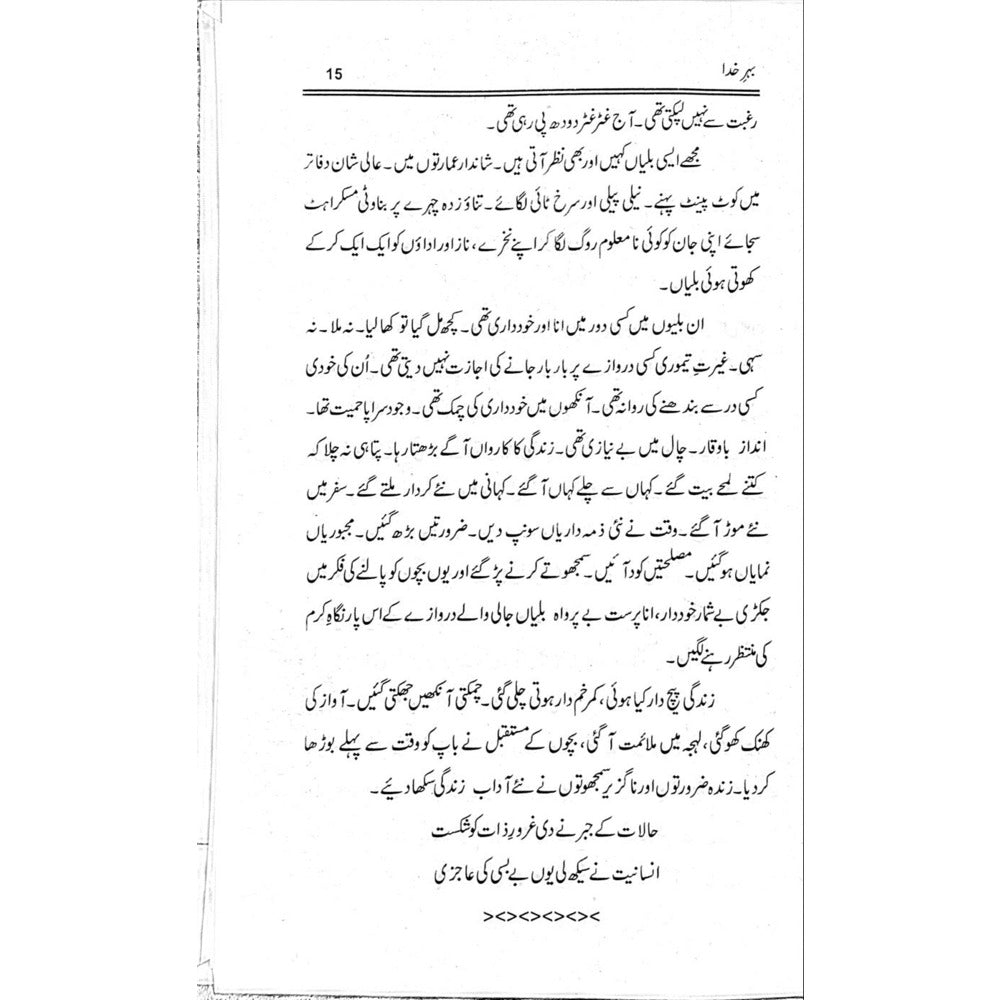 بہرِ خدا 15
رغبت سے نہیں لپکتی تھی۔ آج غٹر غٹر دودھ پی رہی تھی۔
مجھے ایسی بلیاں کہیں اور بھی نظر آتی ہیں۔ شاندار عمارتوں میں۔ عالی شان دفاتر
میں کوٹ پینٹ پہنے۔ نیلی پیلی اور سرخ ٹائی لگائے۔ تناؤ زدہ چہرے پر بناوٹی مسکراہٹ
سجائے اپنی جان کو کوئی نا معلوم روگ لگا کر اپنے نخرے، ناز اور اداؤں کو ایک ایک کر کے
کھوتی ہوئی بلیاں۔
ان بلیوں میں کسی دور میں انا اور خود داری تھی۔ کچھ مل گیا تو کھا لیا۔ نہ ملا۔ نہ
سہی۔ غیرتِ تیموری کسی دروازے پر بار بار جانے کی اجازت نہیں دیتی تھی۔ اُن کی خودی
کسی در سے بندھنے کی روا نہ تھی۔ آنکھوں میں خود داری کی چمک تھی۔ وجود سراپا حمیت تھا۔
انداز باوقار۔ چال میں بے نیازی تھی۔ زندگی کا کارواں آگے بڑھتا رہا۔ پتا ہی نہ چلا کہ
کتنے لمحے بیت گئے۔ کہاں سے چلے کہاں آ گئے۔ کہانی میں نئے کردار ملتے گئے۔ سفر میں
نئے موڑ آ گئے۔ وقت نے نئی ذمہ داریاں سونپ دیں۔ ضرورتیں بڑھ گئیں۔ مجبوریاں
نمایاں ہو گئیں۔ مصلحتیں کود آئیں۔ سمجھوتے کرنے پڑ گئے اور یوں بچوں کو پالنے کی فکر میں
جکڑی بے شمار خود دار، انا پرست بے پرواہ بلیاں جالی والے دروازے کے اس پار نگاہِ کرم
کی منتظر رہنے لگیں۔
زندگی پیچ دار کیا ہوئی، کمر خم دار ہوتی چلی گئی۔ چمکتی آنکھیں جھکتی گئیں۔ آواز کی
کھنک کھو گئی، لہجہ میں ملائمت آ گئی، بچوں کے مستقبل نے باپ کو وقت سے پہلے بوڑھا
کر دیا۔ زندہ ضرورتوں اور ناگزیر سمجھوتوں نے نئے آداب زندگی سکھا دیئے۔
حالات کے جبر نے دی غرورِ ذات کو شکست
انسانیت نے سیکھ لی یوں بے بسی کی عاجزی
><><><><><